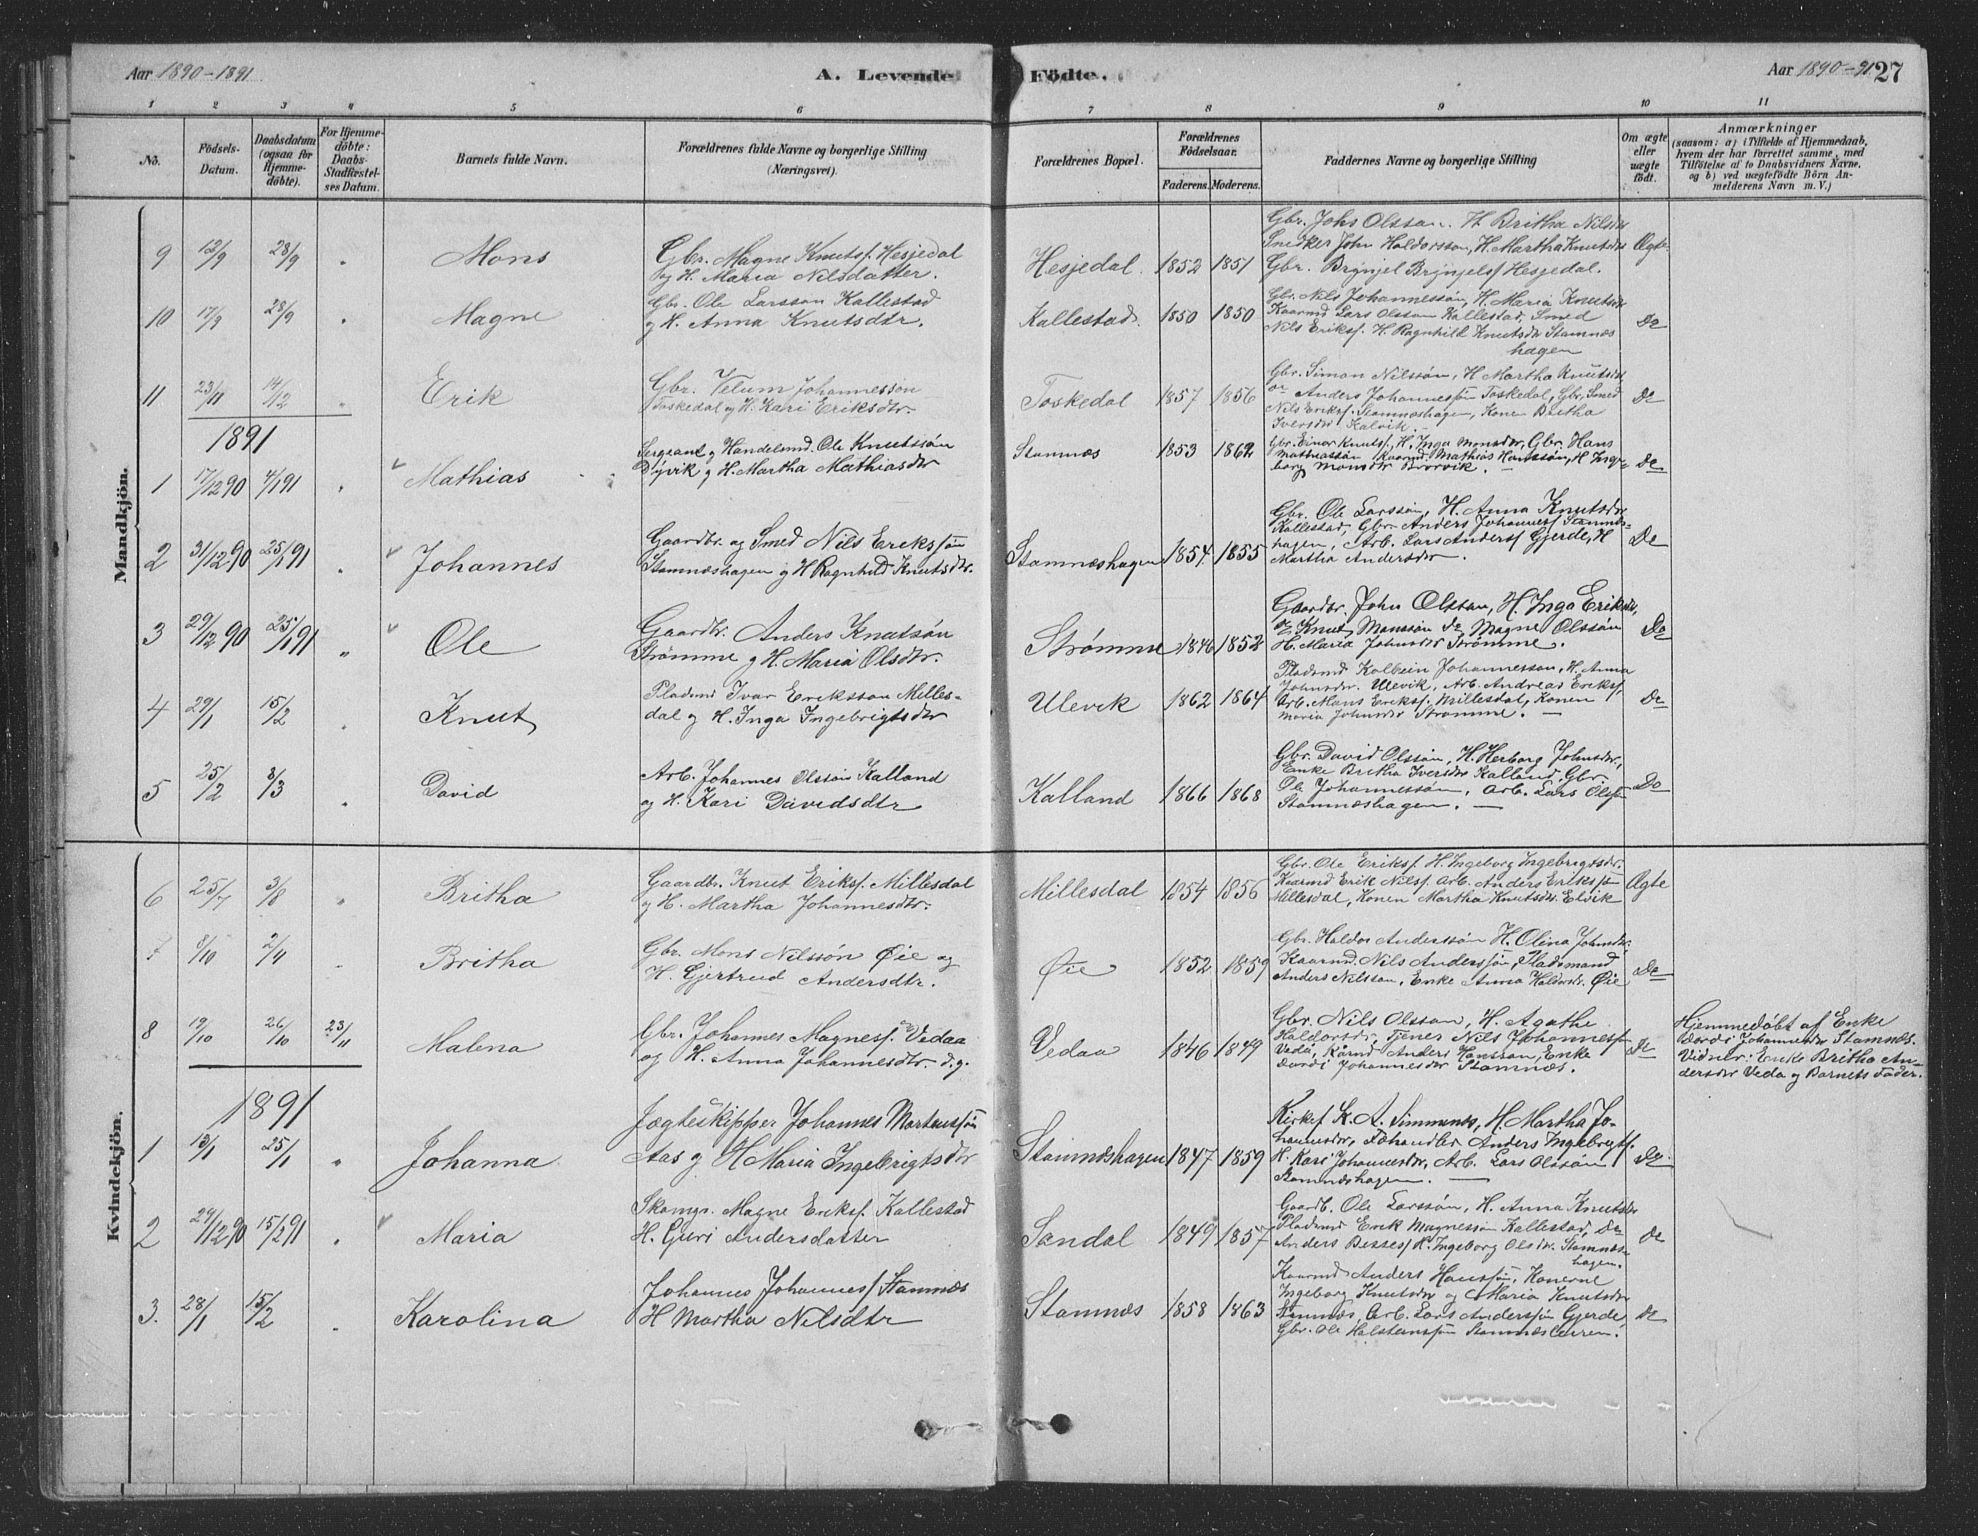 Aar 1890-1891
A. Levende Födte.
Aar 1890-91
27
1 2 3 4 5 6 7 8 9 10 11
No.
Födsels-Datum.
Daabsdatum (ogsaa for Hjemme-döbte).
For Hjemme-döbte: Daabs-Stadfæstel-ses Datum.
Barnets fulde Navn.
Forældrenes fulde Navne og borgerlige Stilling (Næringsvei).
Forældrenes Bopæl.
Forældrenes Födselsaar.
Faderens. Moderens.
Faddernes Navne og borgerlige Stilling
Om ægte eller uægte födt.
Anmærkninger
(saasom: a) i Tilfælde af Hjemmedaab,
hvem der har forrettet samme, med
Tilföielse af to Daabsvidners Navne,
og b) ved uægtefödte Börn An-
melderens Navn m. V.)
Mandkjön.
9 12/9 28/9 " Mons
Gbr. Magne Knutsf. Hesjedal
og H. Maria Nilsdatter.
Hesjedal 1852 1851
Gbr. Johs Olsson. H. Britha Nilsdr
Snedker John Haldorsson, H. Martha Knutsdr
Gbr. Brynjel Brynjelsf Hesjedal.
Ægte
10 17/9 28/9 " Magne
Gbr. Ole Larsson Kallestad
og H. Anna Knutsdtr.
Kallestad. 1850 1850
Gbr. Nils Johannessön, H. Maria Knutsdr
Kaarmd Lars Olsson Kallestad, Smed
Nils Eriksf. H. Ragnhild Knutsdr Stamnæs
hagen
Do
11 23/11 14/12 " Erik
Gbr. Velum Johannesson
Toskedal og H. Kari Eriksdtr.
Toskedal 1857 1856
Gbr. Simon Nilssön, H Martha Knutsdr
Anders Johannessön Toskedal, Gbr. Smed
Nils Eriksf. Stamnæshagen, Konen Britha
Iversdr Kalvik.
Do
1891
1 17/12 90 4/1 91 " Mathias
Sergeant og Handelsmd. Ole Knutssön
Dyvik og H. Martha Mathiasdr
Stamnæs 1853 1862
Gbr. Einar Knutsf., H. Inga Monsdr, Gbr. Hans
Mathiassön Kaarmd. Mathias Hanssön, H Inge-
borg Monsdr
Do
2 31/12 90 25/1 91 " Johannes
Gaardbr. og Smed Nils Erikssön
Stamnæshagen og H Ragnhild Knutsdr.
Stamnæshagen 1854 1855
Gbr. Ole Larssön, H. Anna Knutsdr
Kallestad, Gbr. Anders Johannesf Stamnæs-
hagen, Arb. Lars Andersf Gjerde, H
Martha Andersdr.
Do
3 29/12 90 25/1 91 " Ole
Gaardbr. Anders Knutsön
Strømme og H. Maria Olsdtr.
Strømme 1846 1852
Gaardbr. John Olsson, H. Inga Eriksdr,
Knut Monssön do, Magne Olssön
H. Maria Johnsdr Strømme.
Do
4 29/1 15/2 " Knut
Pladsmd Ivar Eriksson Milles-
dal og H. Inga Ingebrigtsdr
Ulevik 1862 1864
Pladsmd Kolbein Johannesson, H. Anna
Johnsdr. Ulevik, Arb. Andreas Eriksf.
Arb. Mons Eriksf. Millesdal, Konen
Maria Johnsdr Strømme.
Do
5 25/2 8/3 " David
Arb. Johannes Olssön Kalland
og H. Kari Davidsdtr
Kalland 1866 1868
Gbr. David Olssön, H. Herborg Johnsdr,
Enke Britha Iversdr Kalland, Gbr.
Ole Johannessön, Arb. Lars Olsf
Stamnæshagen.
Do
Kvindekjön.
6 25/7 3/8 " Britha
Gaardbr. Knut Eriksf. Millesdal
og H. Martha Johannesdtr.
Millesdal 1854 1856
Gbr. Ole Eriksf. H. Ingeborg Ingebrigtsdr.
Kaarmd Erik Nilsf. Arb. Anders Erikssön
Millesdal, Konen Martha Knutsdr. Elvik
Ægte
7 8/10 2/11 " Britha
Gbr. Mons Nilssön Øie og
H. Gjertrud Andersdtr.
Øie 1852 1859
Gbr. Haldor Anderssön H. Olina Johnsdr.
Kaarmd. Nils Anderssön, Pladsmand
Anders Nilsson, Enke Anna Haldorsdr. Øie
Do
8 19/10 26/10 23/11 Malena
Gbr. Johannes Magnesf. Vedaa
og H. Anna Johannesdtr. d.g.
Vedaa 1846 1849
Gbr. Nils Olsson, H. Agathe
Haldorsdr, Tjenes Nils Johannesf
Veda, Kårmd Anders Hansson, Enke
Dordi Johannesdr Stamnæs.
Do
Hjemmedöbt af Enke
Dordi Johannesdr Stamnæs.
Vidner: Enke Britha An-
dersdr Veda og Barnets Fader.
1891
1 13/1 25/1 " Johanna
Jægteskipper Johannes Martenssön
Aas og H Maria Ingebrigtsdr
Stamnæshagen 1847 1859
Kirkes. K. A. Simmenæs, H. Martha Jo-
hannesdr, Fehandler Anders Ingebrigtsf.
H. Kari Johannesdr, Arb. Lars Olssön
Stamnæshagen.
Do.
2 29/12 90 15/2 91 " Maria
Skomgr. Magne Eriksf. Kallestad
H. Guri Andersdatter
Sandal 1849 1857
Gaardb. Ole Larssön, H. Anna Knutsdr
Pladsmd Erik Magnessön Kallestad, Do
Anders Bessesf H. Ingeborg Olsdr. Stamnæs-
hagen.
Do
3. 28/1 15/2 " Karolina
Johannes Johannesf. Stamnæs
H Martha Nilsdtr
Stamnæs 1858 1863
Kaarmd Anders Hanssön, Konerne
Ingeborg Knutsdr og Maria Knutsdr
Stamnæs, Arb. Lars Anderssön Gjerde,
Gbr. Ole Halstenssön
Do